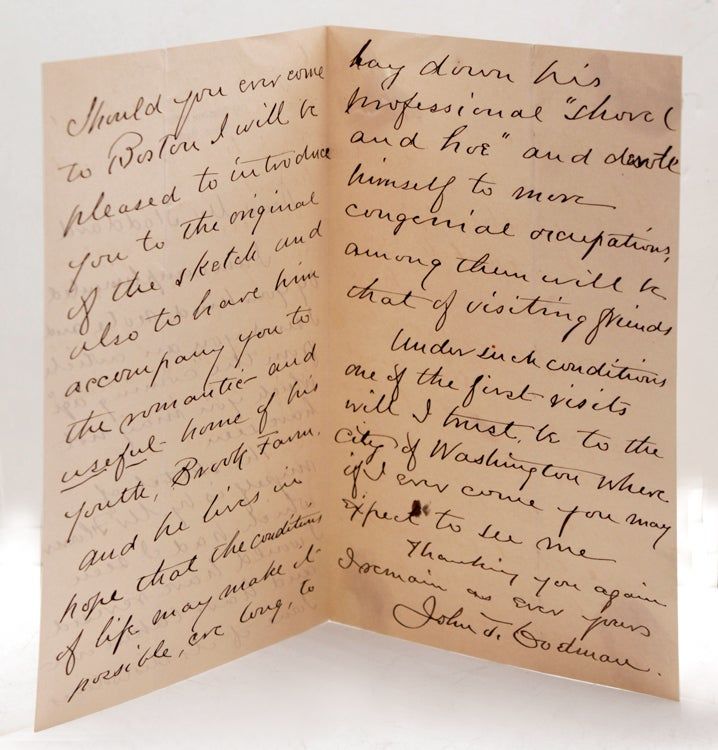 Should you ever come
to Boston I will be
pleased to introduce
you to the original
of the sketch and
also to have him
accompany you to
the romantic and
useful home of his
youth, Brook Farm.
and he lives in
hope that the conditions
of life may make it
possible, ere long, to
lay down his
professional "shovel
and hoe" and devote
himself to more
congenial occupations,
among them will be
that of visiting friends
Under such conditions
one of the first visits
will I trust, be to the
city of Washington where
if I ever come you may
expect to see me
Thanking you again
I remain as ever yours
John T. Codman.